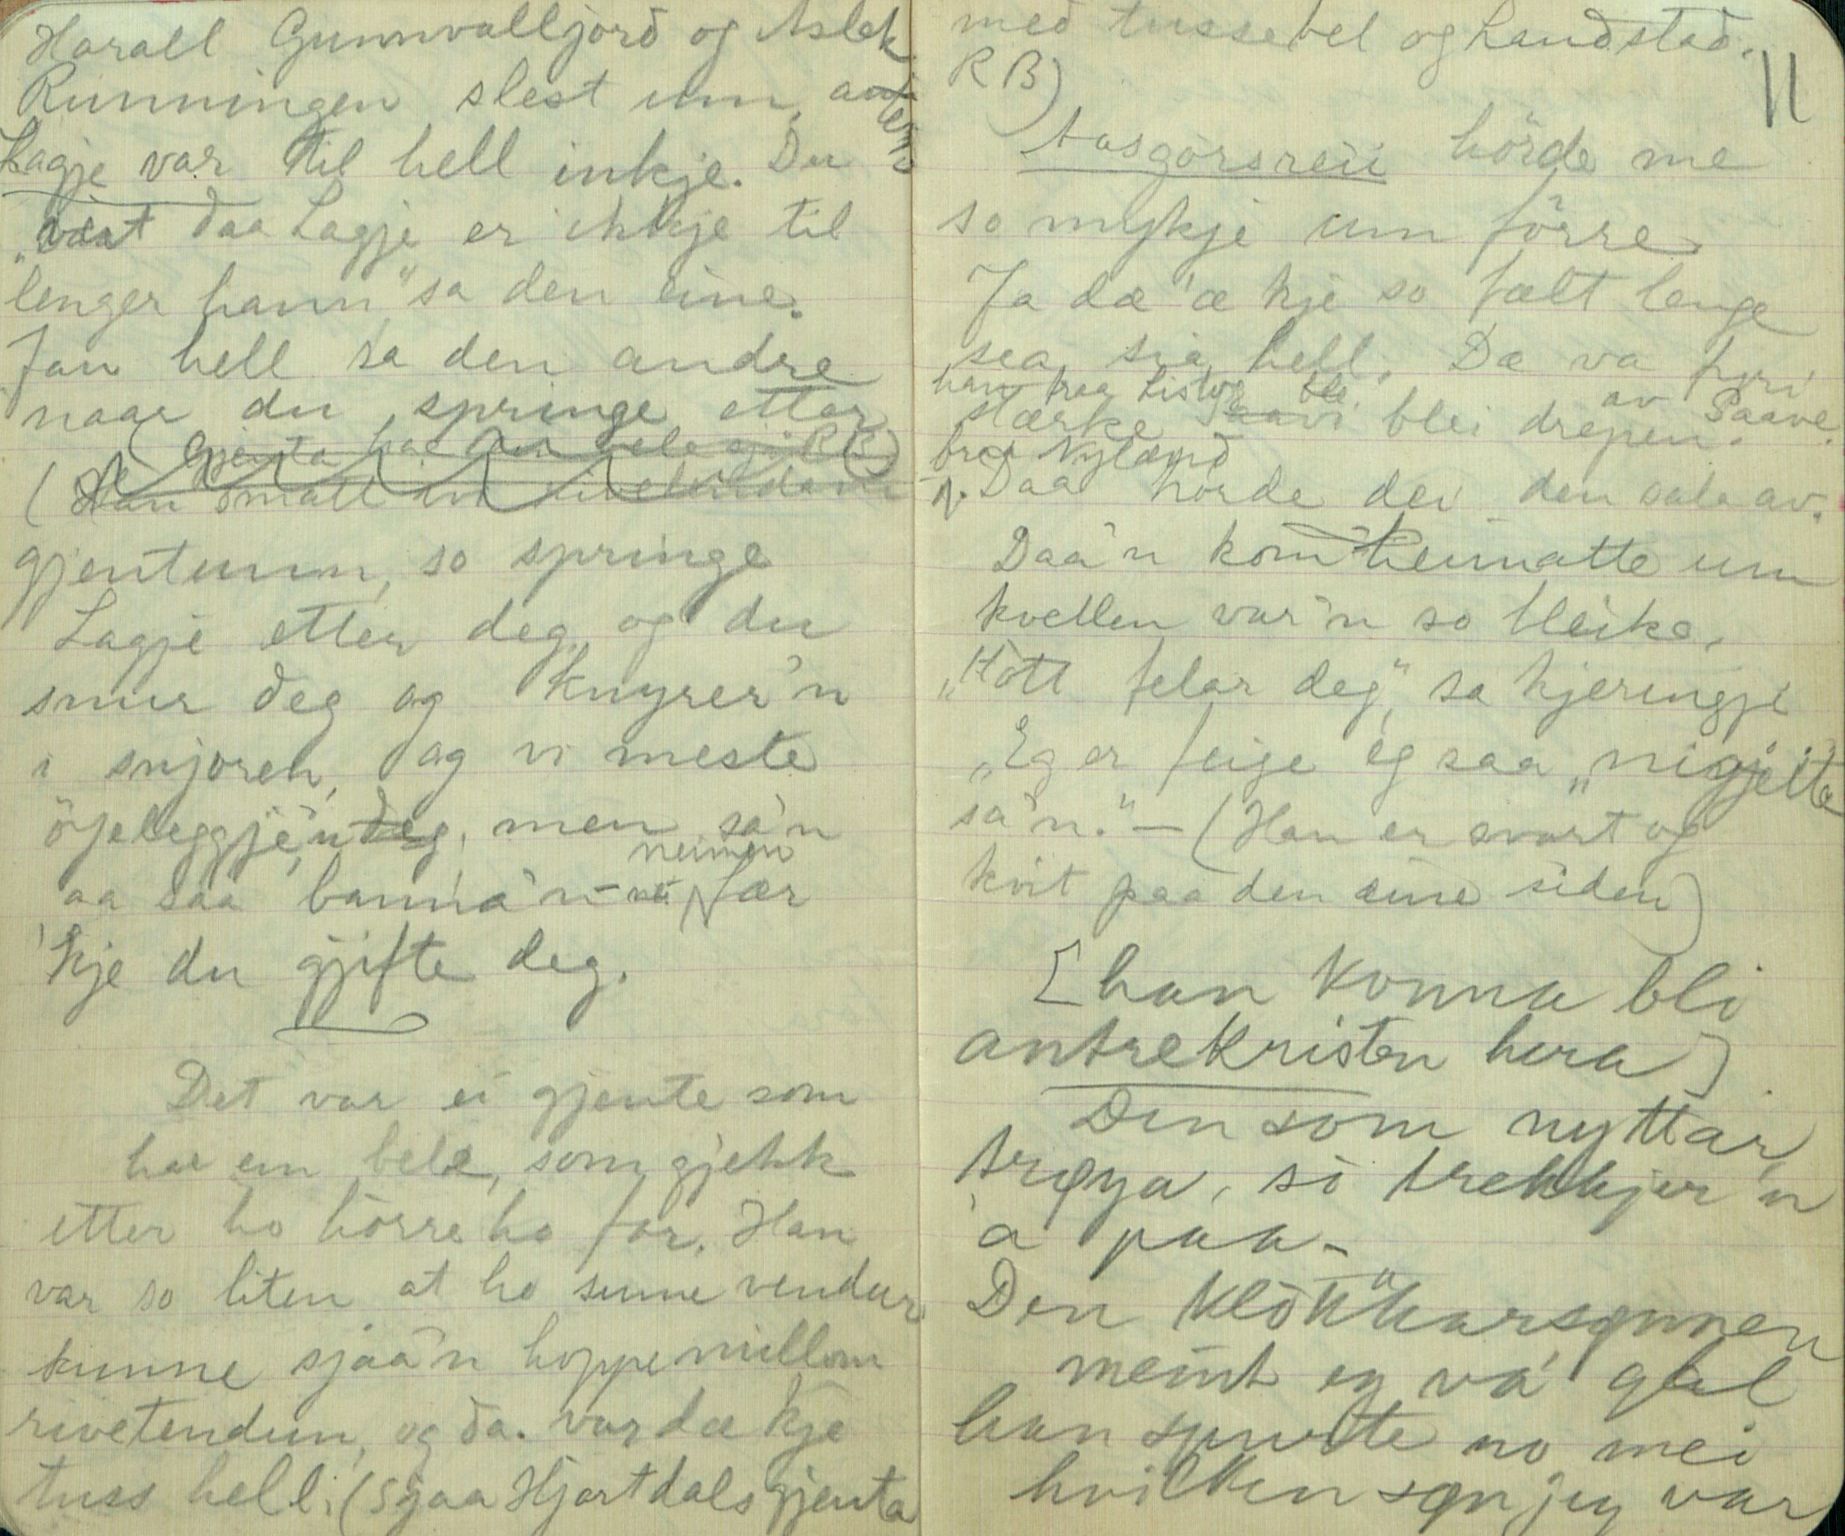 Harall Gunnvalljord og Aslak
Runningen slest um, an
Lagje var til hell inkje. Du
veat daa Lagje er ikkje til
lenger hann" sa den eine.
Jau hell sa den andre
naar du springe etter
(Gjenta hae ein bele sjå RB)
(Han smatt
gjentunn, so springe
Lagje etter deg, og du
snur deg og knyrer'n
i snjoren, og vi meste
öyeleggje'n deg, men sa'n
neimen
aa saa banna'n - fær
'kje du gjifte deg.
Det var ei gjente som
hae ein bele, som gjekk
etter ho hörre ho for. Han
var so liten at ho sume vendur
kunne sjaa'n hoppe millom
rivetendun, og da. var dæ kje
tuss hell. (Sjaa Hjartdalsgjenta
med tussebel og Landstad.
RB)
11
Aasgorsreii hörde me
so mykje um förre
Ja dæ'æ kje so fælt lenge
sea, sia hell. Dæ va fyri
stærke Saavi blei drepen. av Saave.
frå Nyland
Daa hörde dei den sala av.
Daa'n kom heimatte um
kvellen var'n so bleike.
"Hott felar deg", sa kjeringji
"Eg er feige eg saa "nigjitte
sa'n." - (Han er svart og
kvit paa den eine siden)
[han konna bli
antrekristen hera]
Den som nyttar
trøya, so trekkjer'n
'a paa-
Den klokkarsønnen
meint eg va' gal
han spurte no mei
hvilken søn jeg var